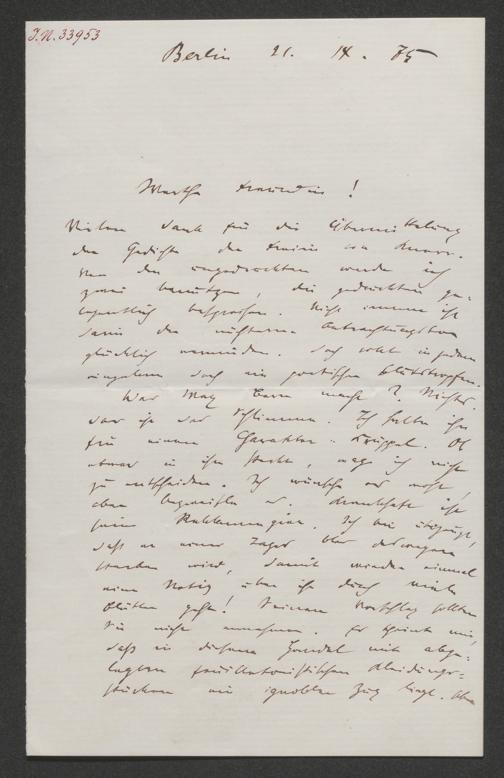 J.N. 33953
Berlin 21. IX. 75
Werthe Freundin!
Vielen Dank für die Übermittelung
der Gedichte der Freiin von Knorr.
Von den ungedruckten werde ich
zwei benutzen, die gedruckten ge-
legentlich besprechen. Nicht immer ist
darin der nüchterne Betrachtungston
glücklich vermieden. Doch rollt in jedem
einzelnen doch ein poetischer Blutstropfen.
War May Bern macht? Nichts.
das ist das Schlimme. Ich halte ihn
für einen Charakter-Krüppel. Ob
etwas in ihm steckt, mag ich nicht
zu entscheiden. Ich wünsche es
aber begreife es. Krankhaft ist
seine Reklamegier. Ich bin überzeugt,
daß er eines Tages blos deswegen
sterben wird, damit wieder einmal
eine Notiz über ihn durch viele
Blätter geht! Seinen Vorschlag sollten
Sie nicht annehmen. Es scheint mir,
daß in diesem Handel mit abge-
legten feuilletonistischen Kleidungs-
stücken ein ignobler Zug liegt.